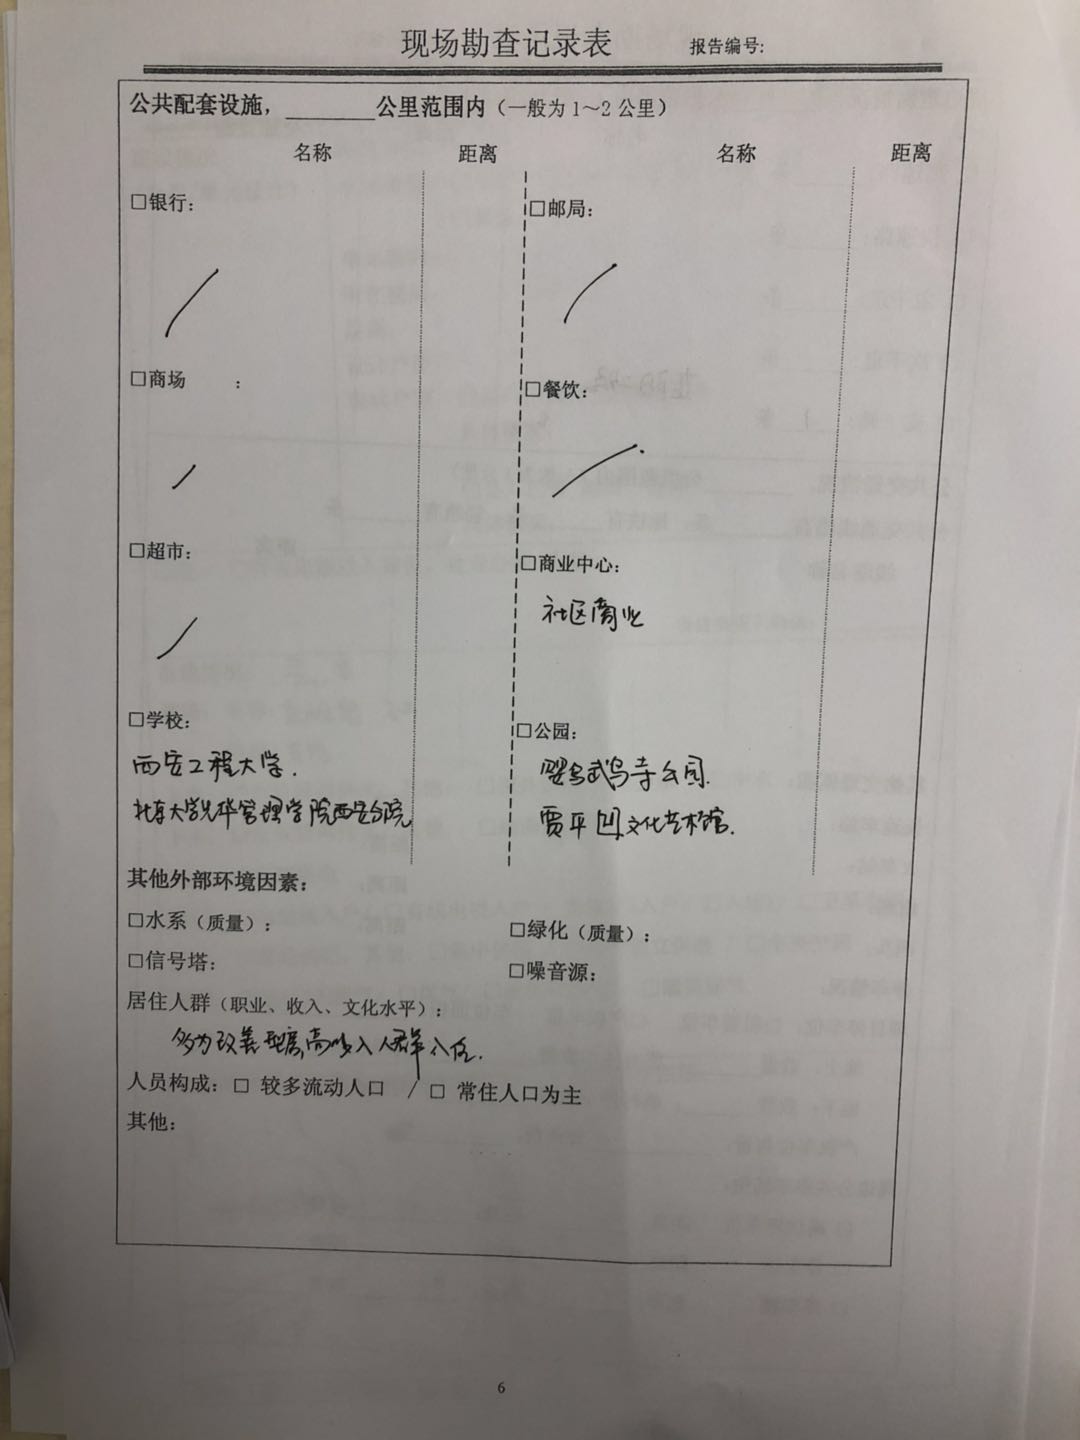 现场勘查记录表 报告编号:
公共配套设施，________公里范围内（一般为1～2公里）
名称 距离 名称 距离
□银行: □邮局:
□商场 : □餐饮:
□超市: □商业中心:
社区商业
□学校: □公园:
西安工程大学.
北京大学光华管理学院西安分院
寺公园.
贾平凹文化艺术馆.
其他外部环境因素:
□水系（质量）: □绿化（质量）:
□信号塔: □噪音源:
居住人群（职业、收入、文化水平）:
多为改善型房,高收入人群入住.
人员构成: □ 较多流动人口 / □ 常住人口为主
其他:
6